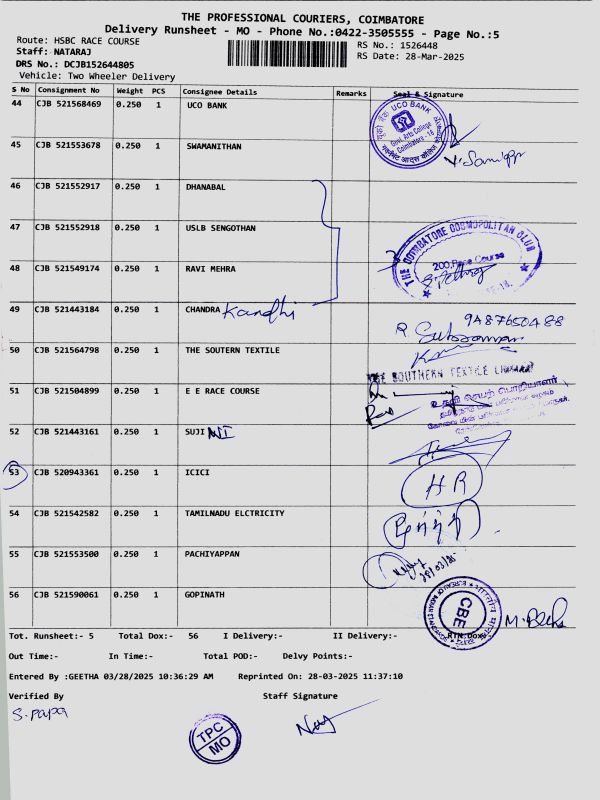 THE PROFESSIONAL COURIERS, COIMBATORE
Delivery Runsheet - MO - Phone No.:0422-3505555 - Page No.:5
Route: HSBC RACE COURSE
Staff: NATARAJ
DRS No.: DCJB152644805
Vehicle: Two Wheeler Delivery
RS No.: 1526448
RS Date: 28-Mar-2025
S No Consignment No Weight PCS Consignee Details Remarks Seal & Signature
44 CJB 521568469 0.250 1 UCO BANK
UCO BANK
Govt. Arts College
Coimbatore - 18
45 CJB 521553678 0.250 1 SWAMANITHAN
46 CJB 521552917 0.250 1 DHANABAL
47 CJB 521552918 0.250 1 USLB SENGOTHAN
THE COIMBATORE COSMOPOLITAN CLUB
200, Race Course
48 CJB 521549174 0.250 1 RAVI MEHRA
49 CJB 521443184 0.250 1 CHANDRA Kandhi
9487650488
50 CJB 521564798 0.250 1 THE SOUTERN TEXTILE
THE SOUTHERN TEXTILE
51 CJB 521504899 0.250 1 E E RACE COURSE
உதவி செயற் பொறியாளர்
52 CJB 521443161 0.250 1 SUJI
53 CJB 520943361 0.250 1 ICICI
HR
54 CJB 521542582 0.250 1 TAMILNADU ELCTRICITY
55 CJB 521553500 0.250 1 PACHIYAPPAN
28/03/25
56 CJB 521590061 0.250 1 GOPINATH
BUREAU OF INDIAN STANDARDS
CBE
Tot. Runsheet:- 5 Total Dox:- 56 I Delivery:- II Delivery:- RTN.Dox:-
Out Time:- In Time:- Total POD:- Delvy Points:-
Entered By :GEETHA 03/28/2025 10:36:29 AM Reprinted On: 28-03-2025 11:37:10
Verified By Staff Signature
S. Papa
TPC
MO